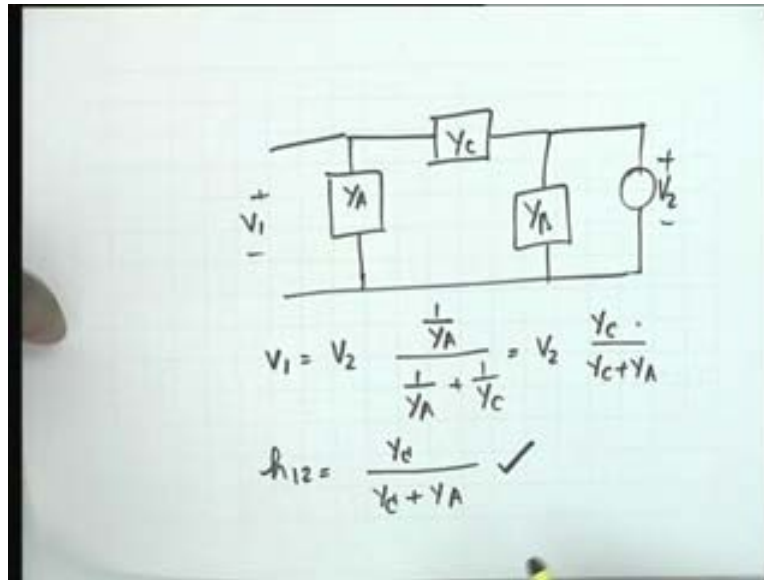 Yc
+ YA YA + V2
V1
- -
V1 = V2 (1/YA)/(1/YA + 1/Yc) = V2 Yc/(Yc+YA)
h12 = Yc/(Yc + YA) ✓